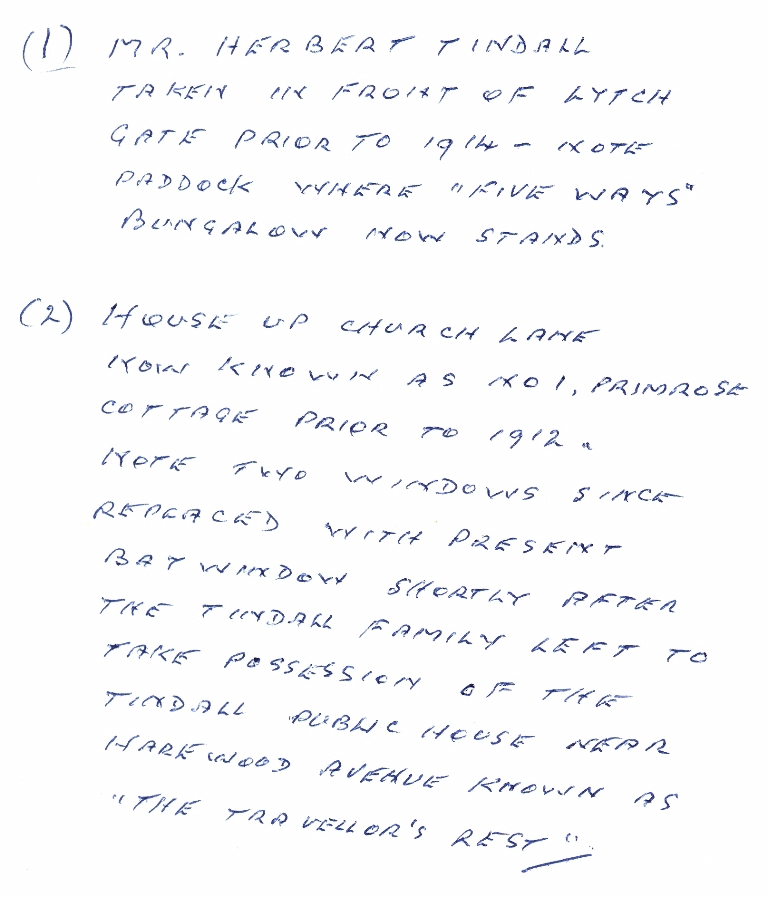 (1) MR. HERBERT TINDALL
TAKEN IN FRONT OF LYTCH
GATE PRIOR TO 1914 - NOTE
PADDOCK WHERE "FIVE WAYS"
BUNGALOW NOW STANDS.
(2) HOUSE UP CHURCH LANE
NOW KNOWN AS NO 1, PRIMROSE
COTTAGE PRIOR TO 1912.
NOTE TWO WINDOWS SINCE
REPLACED WITH PRESENT
BAY WINDOW SHORTLY AFTER
THE TINDALL FAMILY LEFT TO
TAKE POSSESSION OF THE
TINDALL PUBLIC HOUSE NEAR
HAREWOOD AVENUE KNOWN AS
"THE TRAVELLOR'S REST"